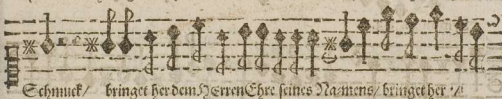 Schmuck/ bringet her dem HErren Ehre seines Na-mens/ bringet her ·/·